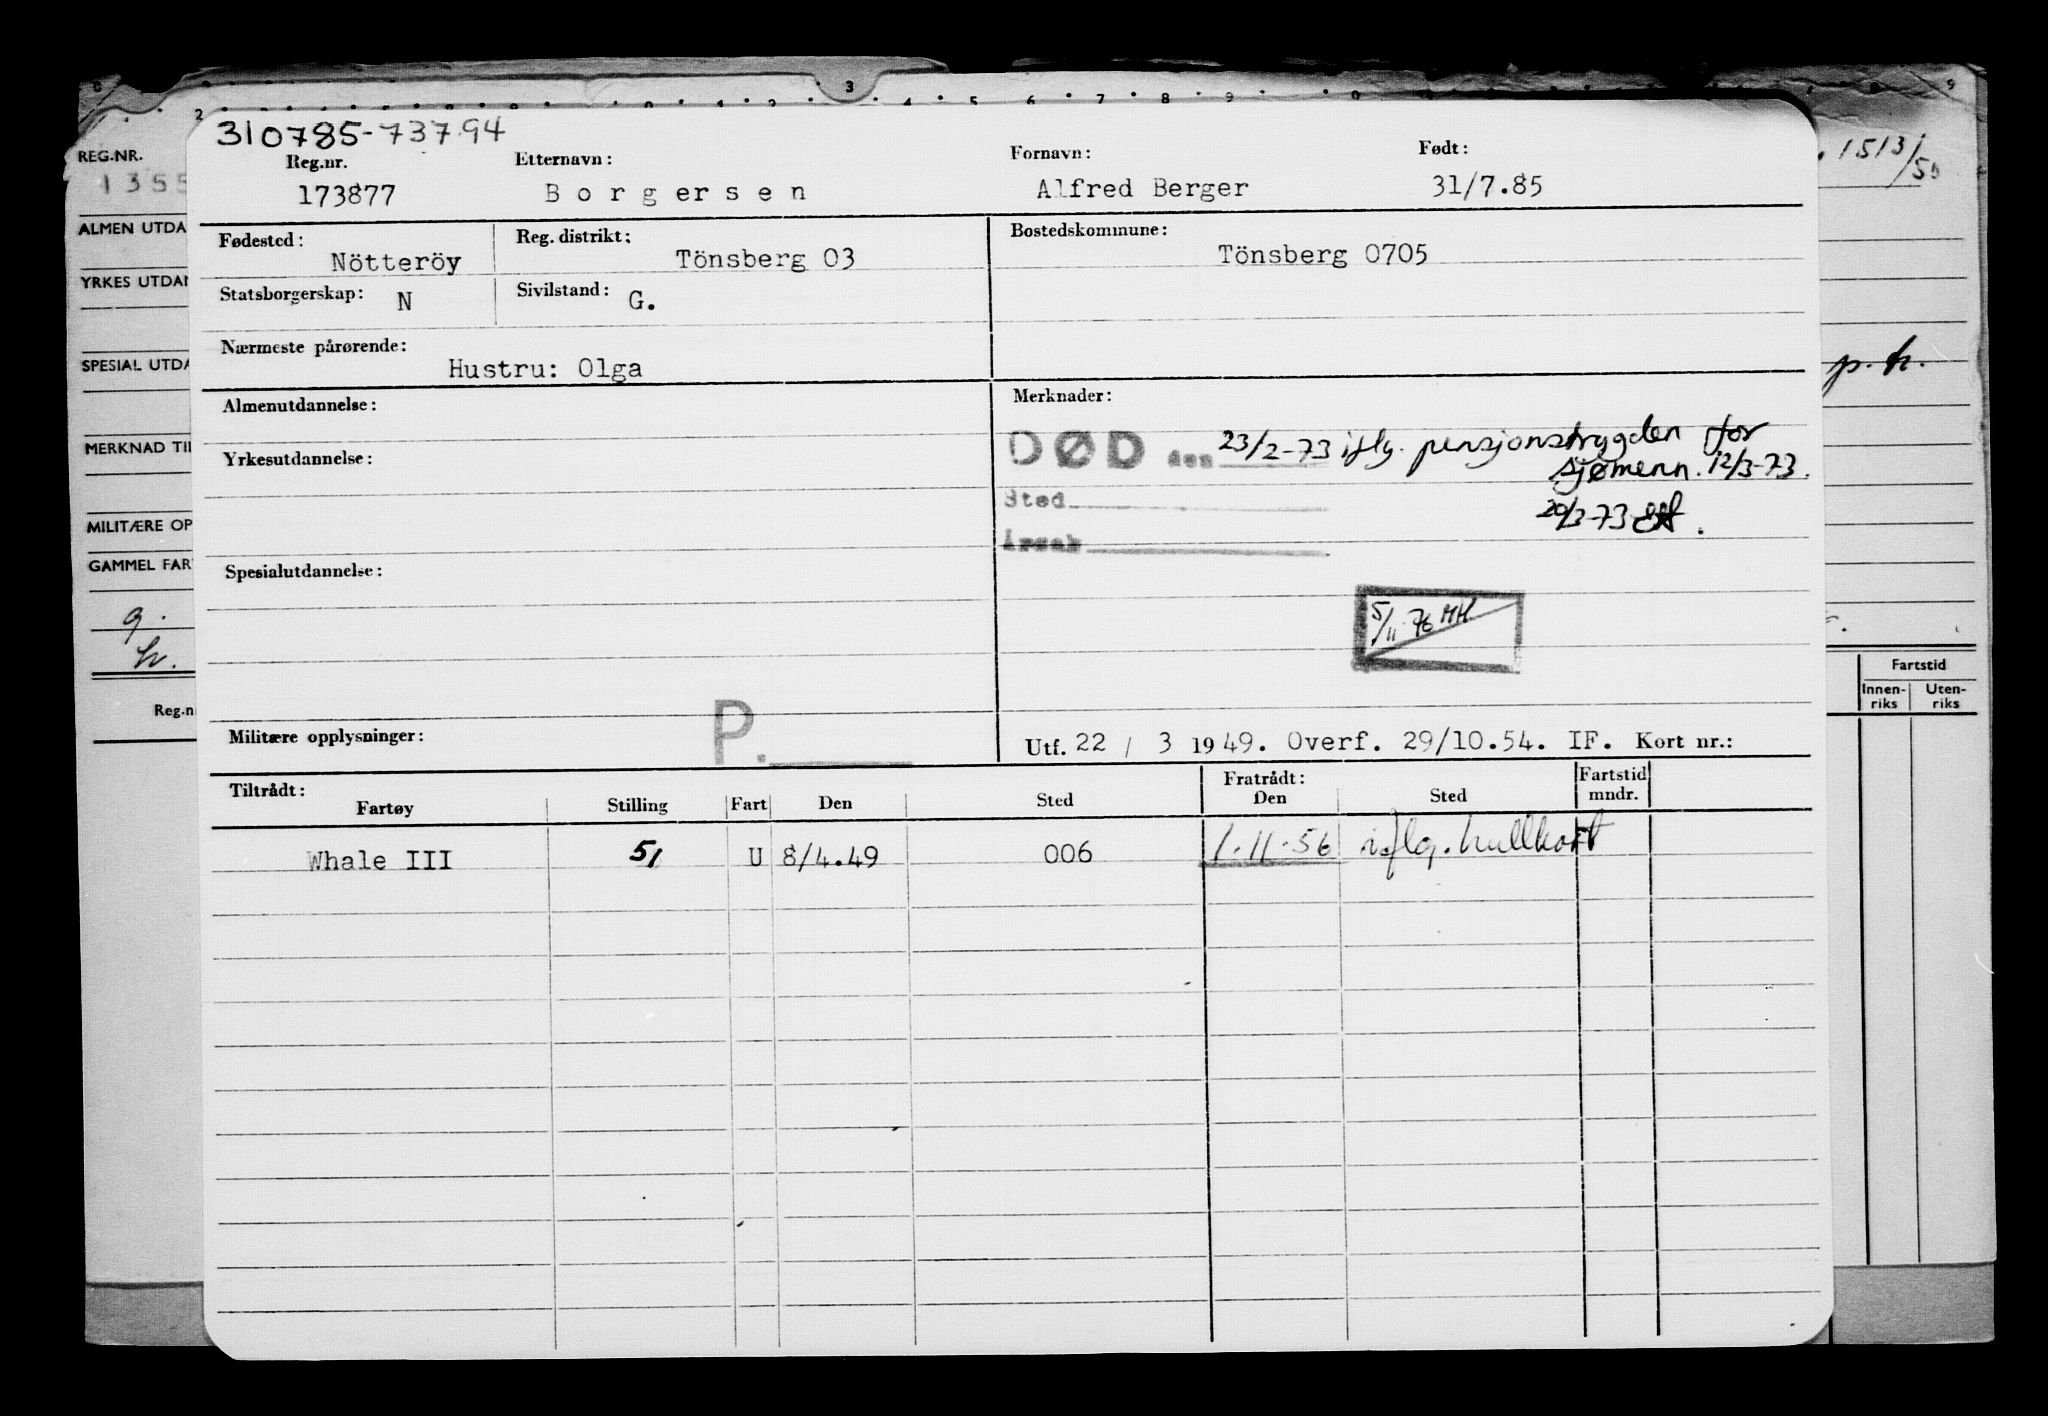 310785-73794
Reg.nr. Etternavn: Fornavn: Født:
173877 Borgersen Alfred Berger 31/7.85
Fødested: Nötteröy Reg. distrikt: Tönsberg 03 Bostedskommune: Tönsberg 0705
Statsborgerskap: N Sivilstand: G.
Nærmeste pårørende:
Hustru: Olga
Almenutdannelse: Merknader:
DØD den 23/2-73 iflg. pensjonstrygden for
sjømenn. 12/3-73.
Yrkesutdannelse:
Sted
20/3-73
Årsak
Spesialutdannelse:
5/11-76 MH
P.
Militære opplysninger: Utf. 22 / 3 1949. Overf. 29/10.54. IF. Kort nr.:
Tiltrådt: Fratrådt: Fartstid
Fartøy Stilling Fart Den Sted Den Sted mndr.
Whale III 51 U 8/4.49 006 1.11.56 iflg. hullkort
REG.NR.
1355
ALMEN UTDA
YRKES UTDAN
SPESIAL UTDA
MERKNAD TIL
MILITÆRE OP
GAMMEL FAR
g.
h.
Reg.n
1513/50
p.h.
Fartstid
Innen-riks Uten-riks